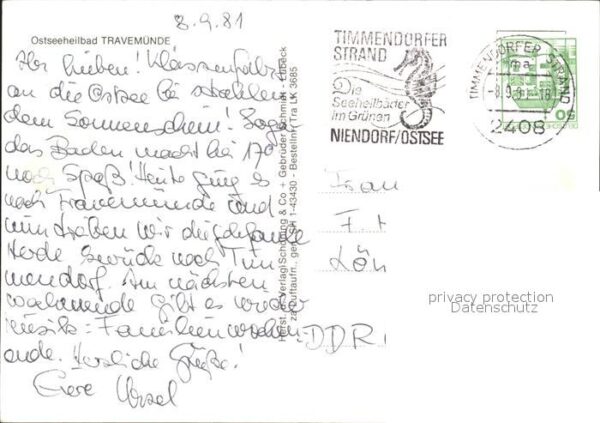 8.9.81
Ostseeheilbad TRAVEMÜNDE
Ihr Lieben! Klassenfahrt
an die Ostsee bei strahlen
dem Sonnenschein! Sogar
das Baden macht bei 17°
noch Spaß! Heute ging es
nach Travemünde und
nun treiben wir die
Herde zurück nach Tim
mendorf. Am nächsten
wochenende gibt es wieder
musik: Familienwochen-
ende. Herzliche Grüße!
Eure Ursel
Herst. u. Verlag Schöning & Co + Gebrüder Schmidt · Lübeck
zal. Luftaufn., gen. SH 1-43430 - Bestellnr. Tra LK 3685
TIMMENDORFER
STRAND
Die
Seeheilbäder
im Grünen
NIENDORF/OSTSEE
TIMMENDORFER STRAND
ma
-8.9.81-18
2408
Frau
F
Kön
DDR
privacy protection
Datenschutz